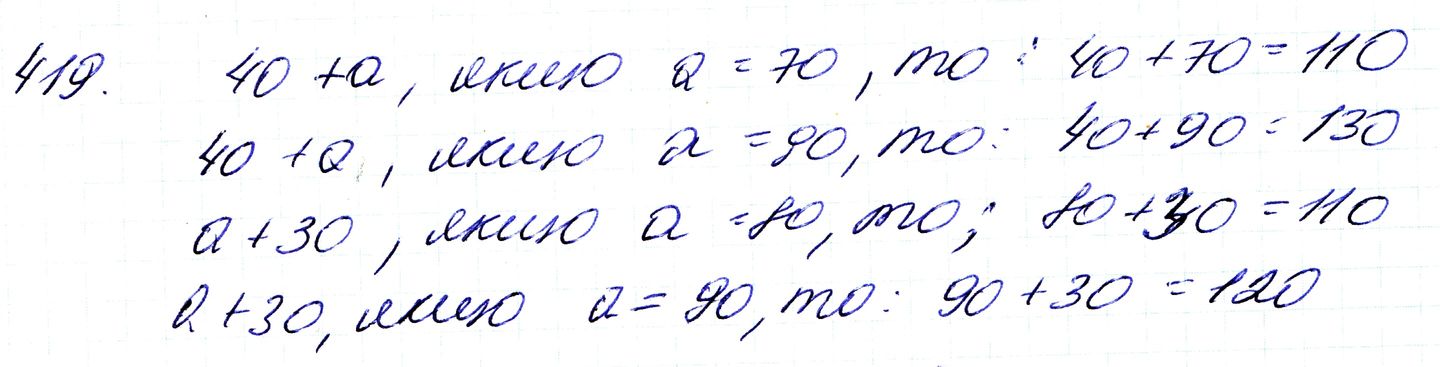 419. 40 + a, якщо a = 70, то: 40 + 70 = 110
40 + a, якщо a = 90, то: 40 + 90 = 130
a + 30, якщо a = 80, то: 80 + 30 = 110
a + 30, якщо a = 90, то: 90 + 30 = 120